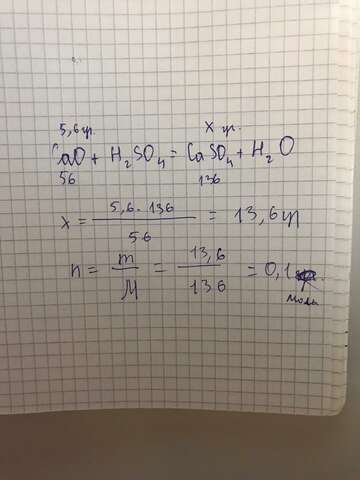 5,6гр. х гр.
CaO + H₂SO₄ = CaSO₄ + H₂O
56 136
x = 5,6 · 136 / 56 = 13,6гр
n = m / M = 13,6 / 136 = 0,1
моль